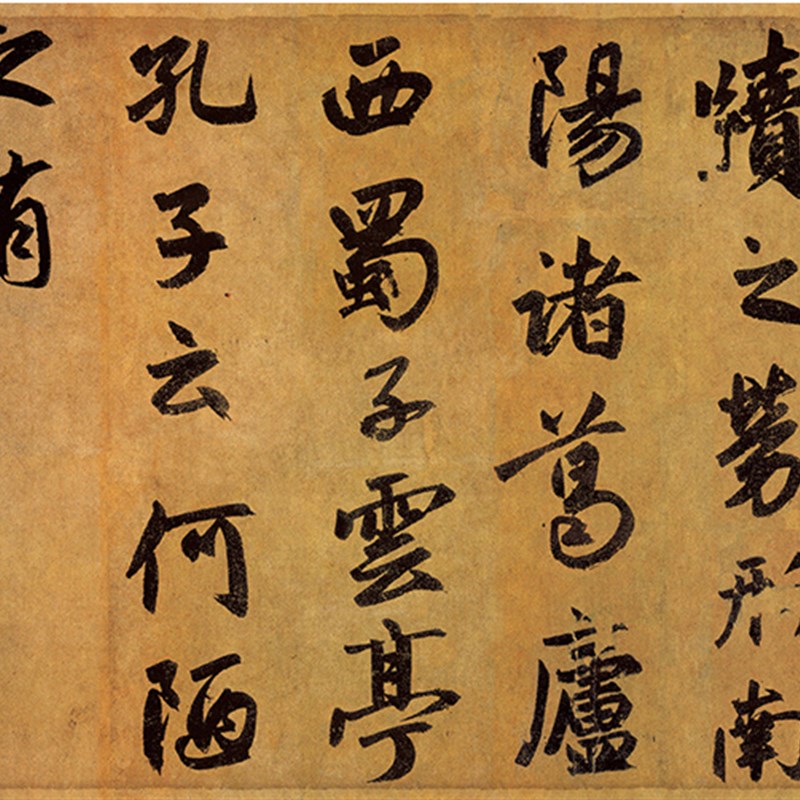 牘之勞形南
陽諸葛廬
西蜀子雲亭
孔子云何陋
之有